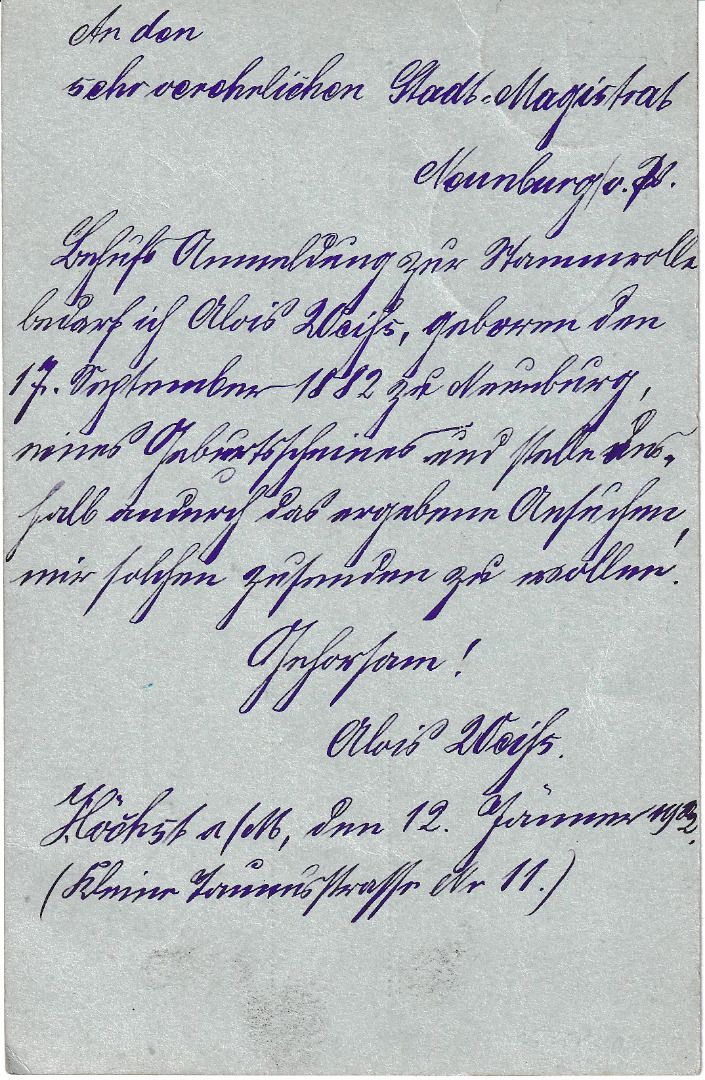 An den
sehr verehrlichen Stadt-Magistrat
Neunburg v. W.
Behufs Anmeldung zur Stammrolle
bedarf ich Alois Weiß, geboren den
17. September 1882 zu Neunburg,
eines Geburtsscheines und stelle des-
halb andurch das ergebene Ansuchen,
mir solchen zusenden zu wollen.
Gehorsam!
Alois Weiß.
Höchst a/M, den 12. Jänner 1902.
(Kleine Taunusstrasse Nr 11.)